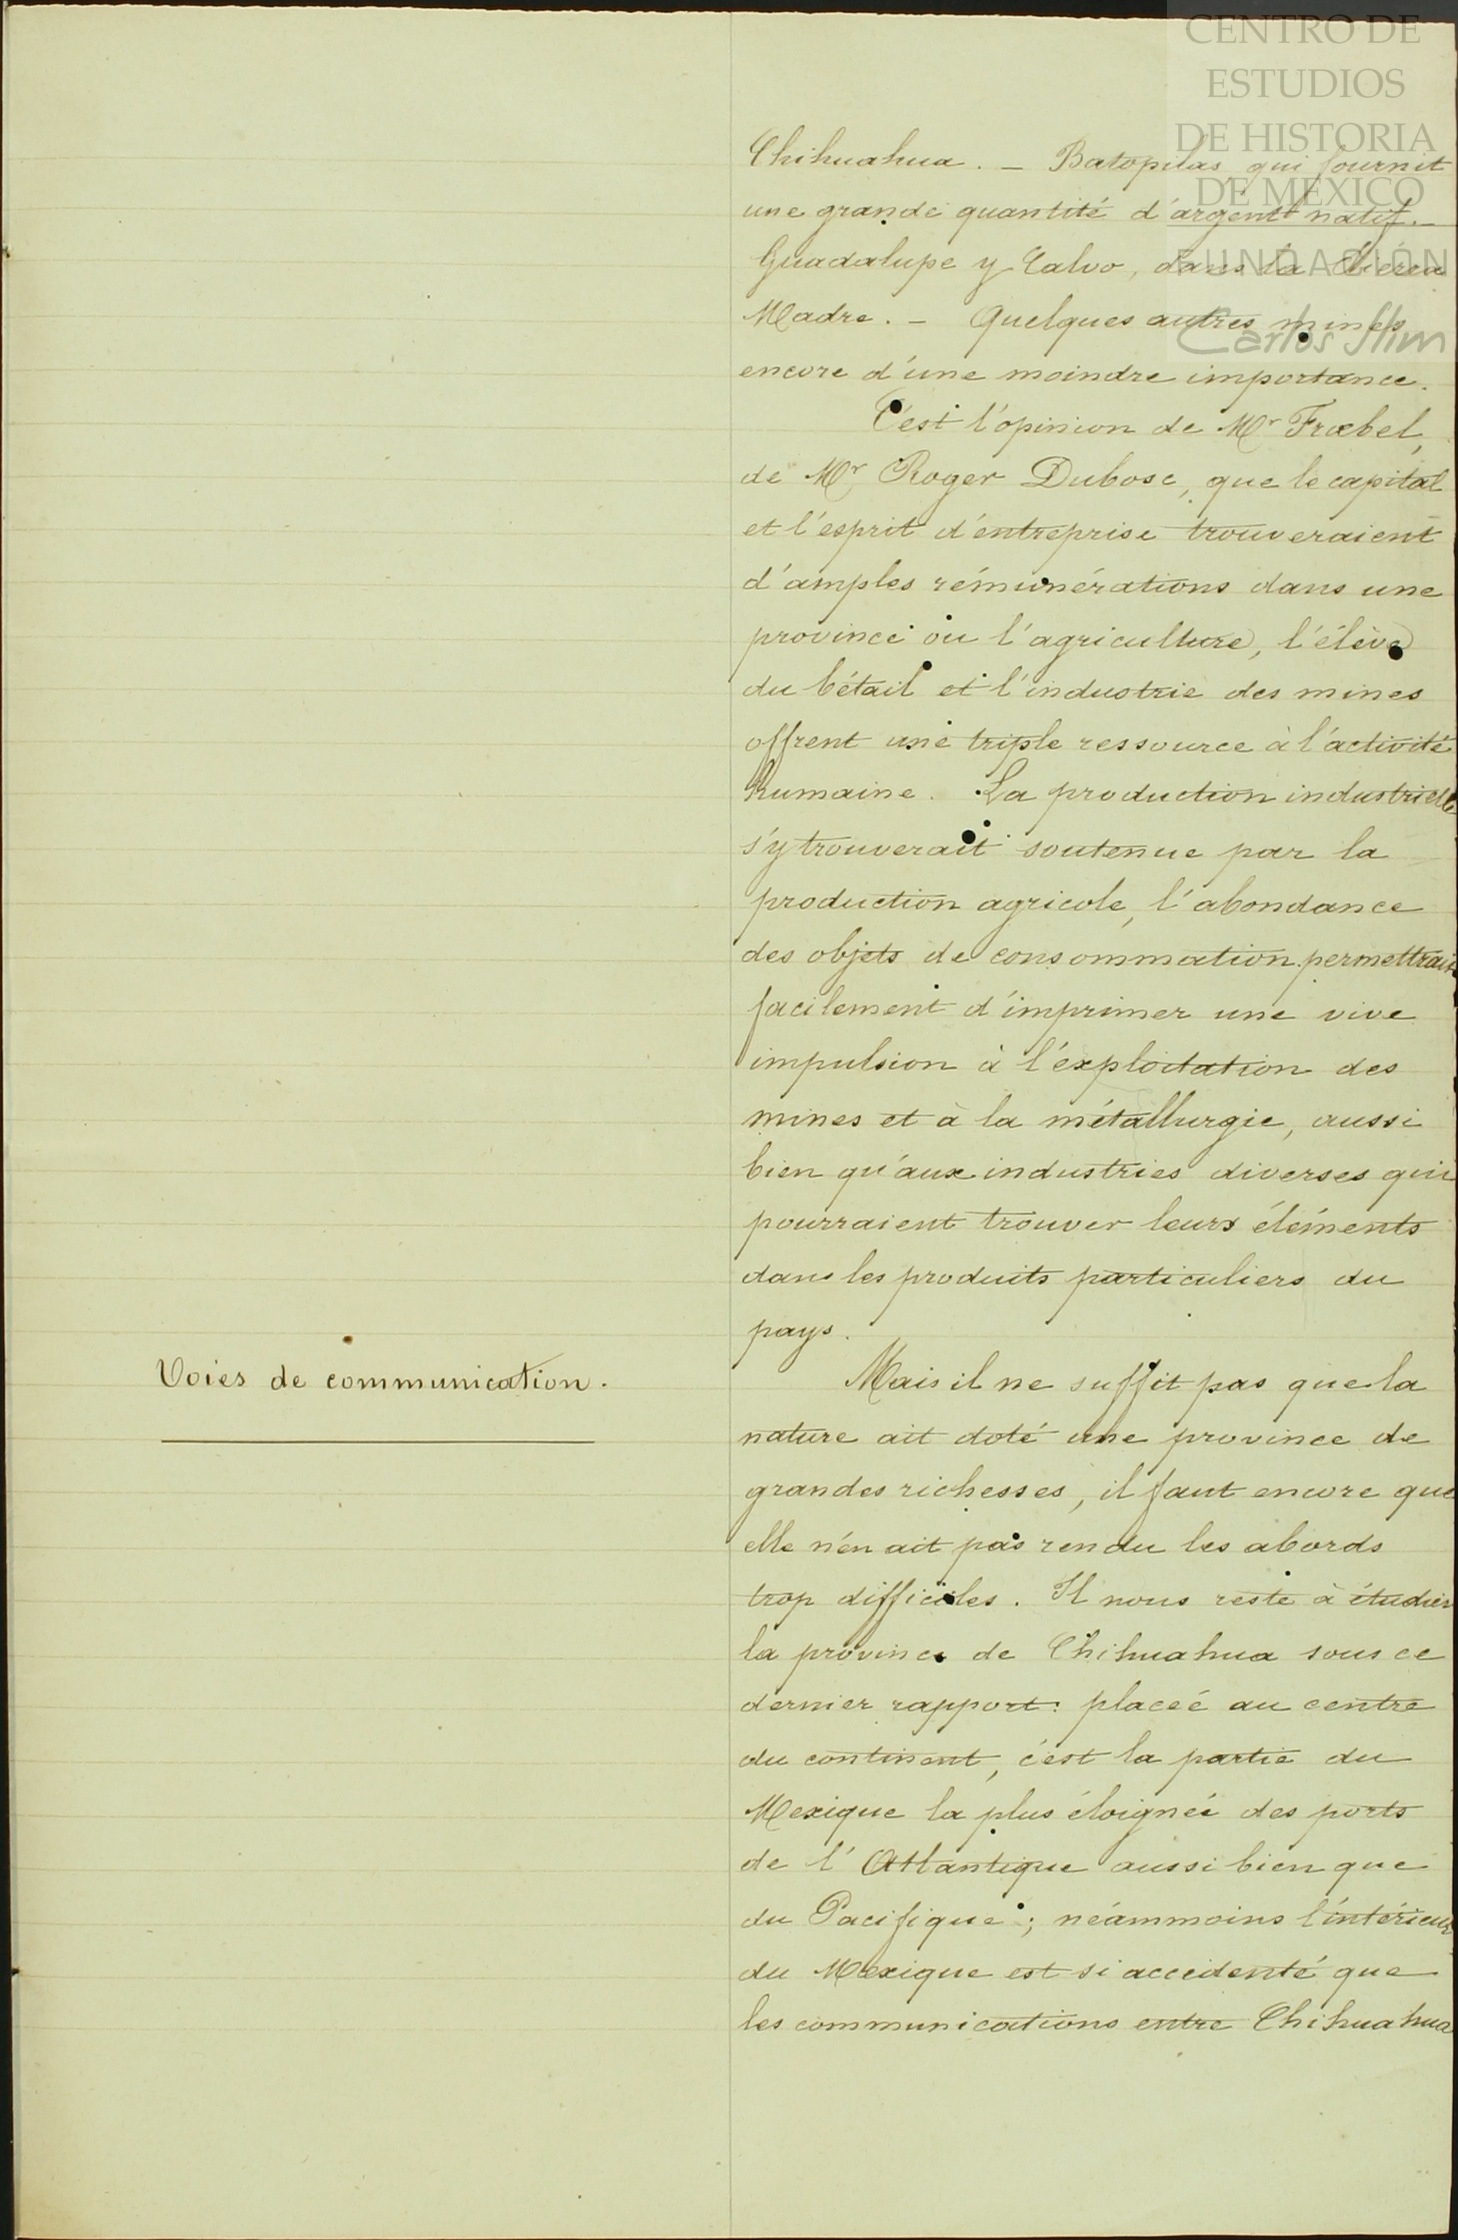 CENTRO DE
ESTUDIOS
DE HISTORIA
DE MÉXICO
FUNDACIÓN
Carlos Slim
Chihuahua. — Batopilas, qui fournit
une grande quantité d'argent natif. —
Guadalupe y Calvo, dans la Sierra
Madre. — Quelques autres mines
encore d'une moindre importance.
C'est l'opinion de Mr Frœbel,
de Mr Roger Dubosc, que le capital
et l'esprit d'entreprise trouveraient
d'amples rémunérations dans une
province où l'agriculture, l'élève
du bétail et l'industrie des mines
offrent une triple ressource à l'activité
humaine. La production industrielle
s'y trouverait soutenue par la
production agricole, l'abondance
des objets de consommation permettrait
facilement d'imprimer une vive
impulsion à l'exploitation des
mines et à la métallurgie, aussi
bien qu'aux industries diverses qui
pourraient trouver leurs éléments
dans les produits particuliers du
pays.
Voies de communication.
Mais il ne suffit pas que la
nature ait doté une province de
grandes richesses, il faut encore que
elle n'en ait pas rendu les abords
trop difficiles. Il nous reste à étudier
la province de Chihuahua sous ce
dernier rapport: placée au centre
du continent, c'est la partie du
Mexique la plus éloignée des ports
de l'Atlantique aussi bien que
du Pacifique; néammoins l'intérieur
du Mexique est si accidenté que
les communications entre Chihuahua